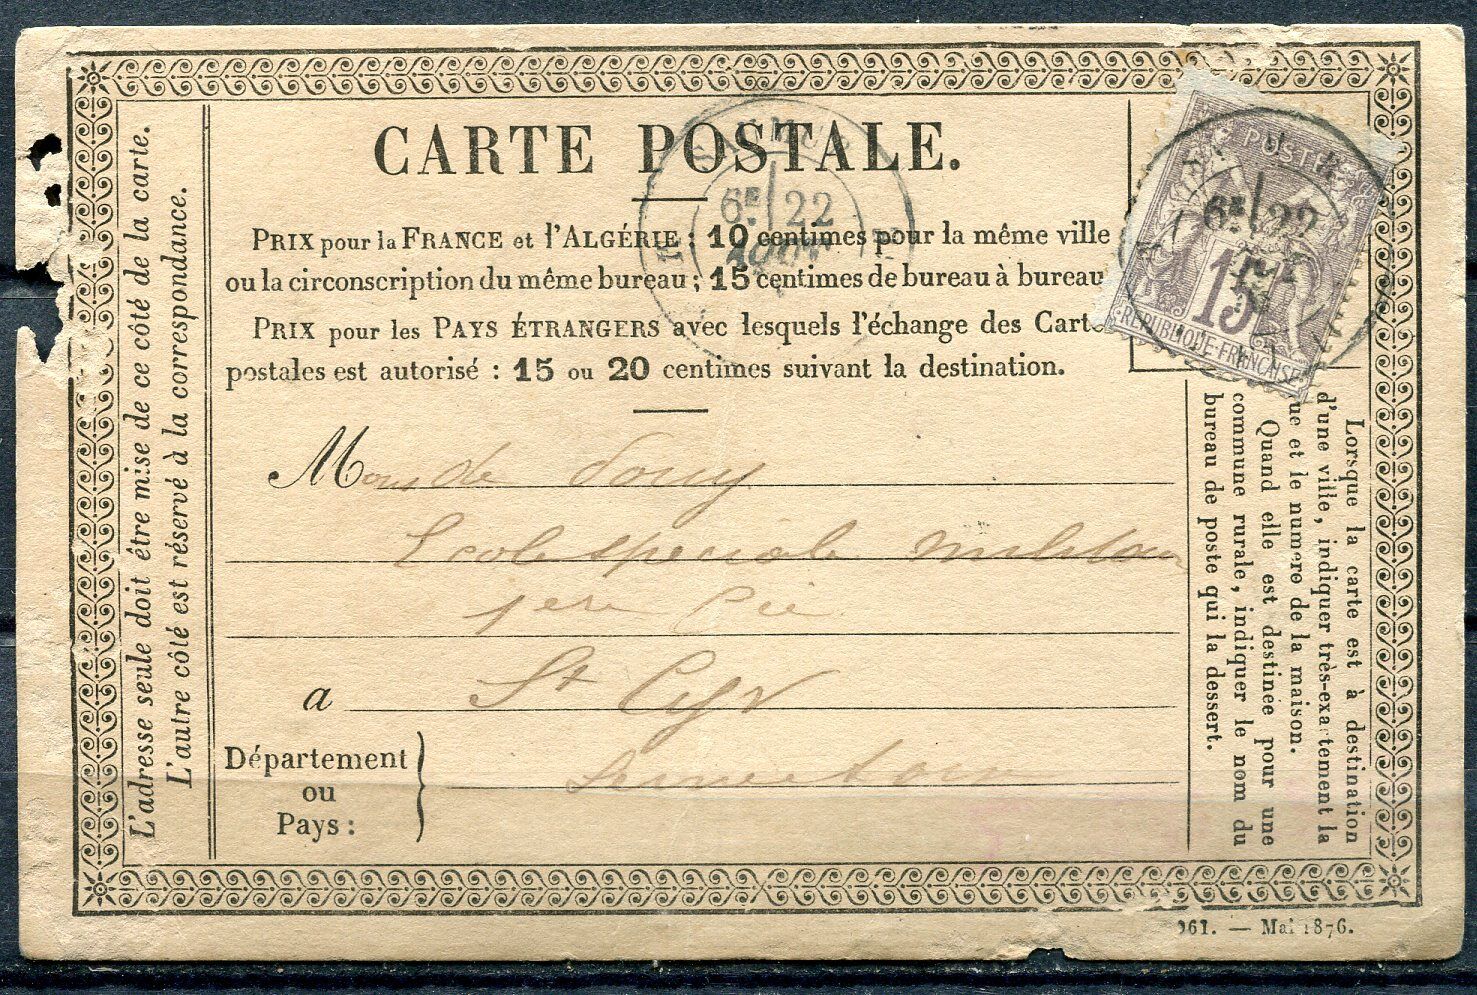 CARTE POSTALE.
PRIX pour la FRANCE et l'ALGÉRIE : 10 centimes pour la même ville
ou la circonscription du même bureau ; 15 centimes de bureau à bureau
PRIX pour les PAYS ÉTRANGERS avec lesquels l'échange des Carte
postales est autorisé : 15 ou 20 centimes suivant la destination.
Mons de
Ecole speciale militaire
1ere Cie
a St Cyr
Département
ou
Pays :
L'adresse seule doit être mise de ce côté de la carte.
L'autre côté est réservé à la correspondance.
Lorsque la carte est à destination
d'une ville, indiquer très-exactement la
ue et le numero de la maison.
Quand elle est destinée pour une
commune rurale, indiquer le nom du
bureau de poste qui la dessert.
POSTE
15
REPUBLIQUE FRANCAISE
6E 22
AOUT
6E 22
961. — Mai 1876.